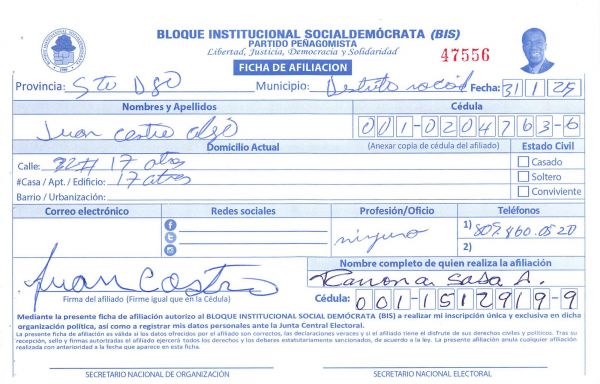 BLOQUE INSTITUCIONAL SOCIALDEMÓCRATA (BIS)
PARTIDO PEÑAGOMISTA
Libertad, Justicia, Democracia y Solidaridad
47556
FICHA DE AFILIACION
Provincia: Sto Dgo Municipio: Distrito Fecha: 31/1/25
Nombres y Apellidos Cédula
Juan Castro 001-0204763-6
Domicilio Actual (Anexar copia de cédula del afiliado) Estado Civil
Calle: 32 # 17 atras Casado
#Casa / Apt. / Edificio: 17 atras Soltero
Barrio / Urbanización: Conviviente
Correo electrónico Redes sociales Profesión/Oficio Teléfonos
ninguno 1) 809.860.0520
2)
Juan Castro
Firma del afiliado (Firme igual que en la Cédula)
Nombre completo de quien realiza la afiliación
Ramona Sosa A.
Cédula: 001-1512919-9
Mediante la presente ficha de afiliación autorizo al BLOQUE INSTITUCIONAL SOCIAL DEMÓCRATA (BIS) a realizar mi inscripción única y exclusiva en dicha
organización política, así como a registrar mis datos personales ante la Junta Central Electoral.
La presente ficha de afiliación es válida si los datos ofrecidos por el afiliado son correctos, las declaraciones veraces y si el afiliado tiene el disfrute de sus derechos civiles y políticos. Tras su
recepción, sello y firmas autorizadas el afiliado ejercerá todos los derechos y los deberes estatutariamente sancionados, de acuerdo a la ley. La presente afiliación anula cualquier afiliación
realizada con anterioridad a la fecha que aparece en esta ficha.
SECRETARIO NACIONAL DE ORGANIZACIÓN SECRETARIO NACIONAL ELECTORAL